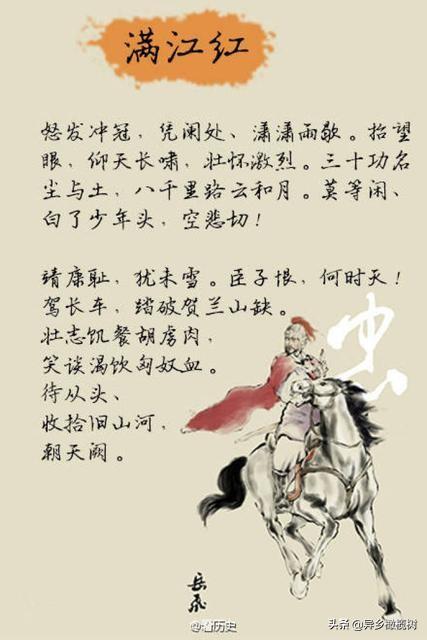 满江红
怒发冲冠，凭阑处、潇潇雨歇。抬望
眼，仰天长啸，壮怀激烈。三十功名
尘与土，八千里路云和月。莫等闲、
白了少年头，空悲切！
靖康耻，犹未雪。臣子恨，何时天！
驾长车，踏破贺兰山缺。
壮志饥餐胡虏肉，
笑谈渴饮匈奴血。
待从头、
收拾旧山河，
朝天阙。
忠
岳飞
历史
头条 @异乡橄榄树